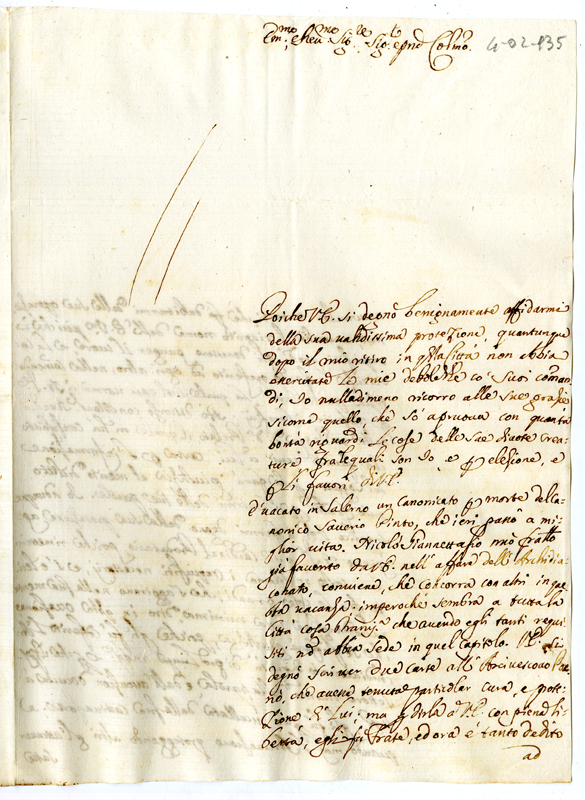 Em.mo, e Rev.mo Sig.re Sig.re e pnđ Col.mo 4-02-135
Poiche V.E. si degnò benignamente affidarmi
della sua validissima protezione, quantunque
dopo il mio ritiro in q̃lla Città non abbia
esercitate le mie debolezze co' suoi coman
di, Io nulladimeno ricorro alle sue grazie
sicome quello, che sò a pruova con quanta
bontà riguardi le cose delle sue divote Crea
ture fralequali son Io e p elezione, e
p li favori di V.E.
È vacato in Salerno un Canonicato p morte del Ca
nonico Saverio Pinto, che ieri passò a mi
glior vita. Nicolò Giannettasio mio frãllo
già favorito da V.E. nell' affare dell' Archidia
conato, conviene, che concorra con altri in que
sta vacanza: imperoché sembra a tutta la
Città cosa strana, che avendo egli tanti requi
siti nõ abbia sede in quel Capitolo. V.E. si
degnò scriver due carte all' Arcivescovo
nò, che avesse tenuta particolar cura, e prote
zione di Lui; ma p dirla a V.E. con piena li
bertà, egli fu Frate, ed ora è tanto dedito
ad